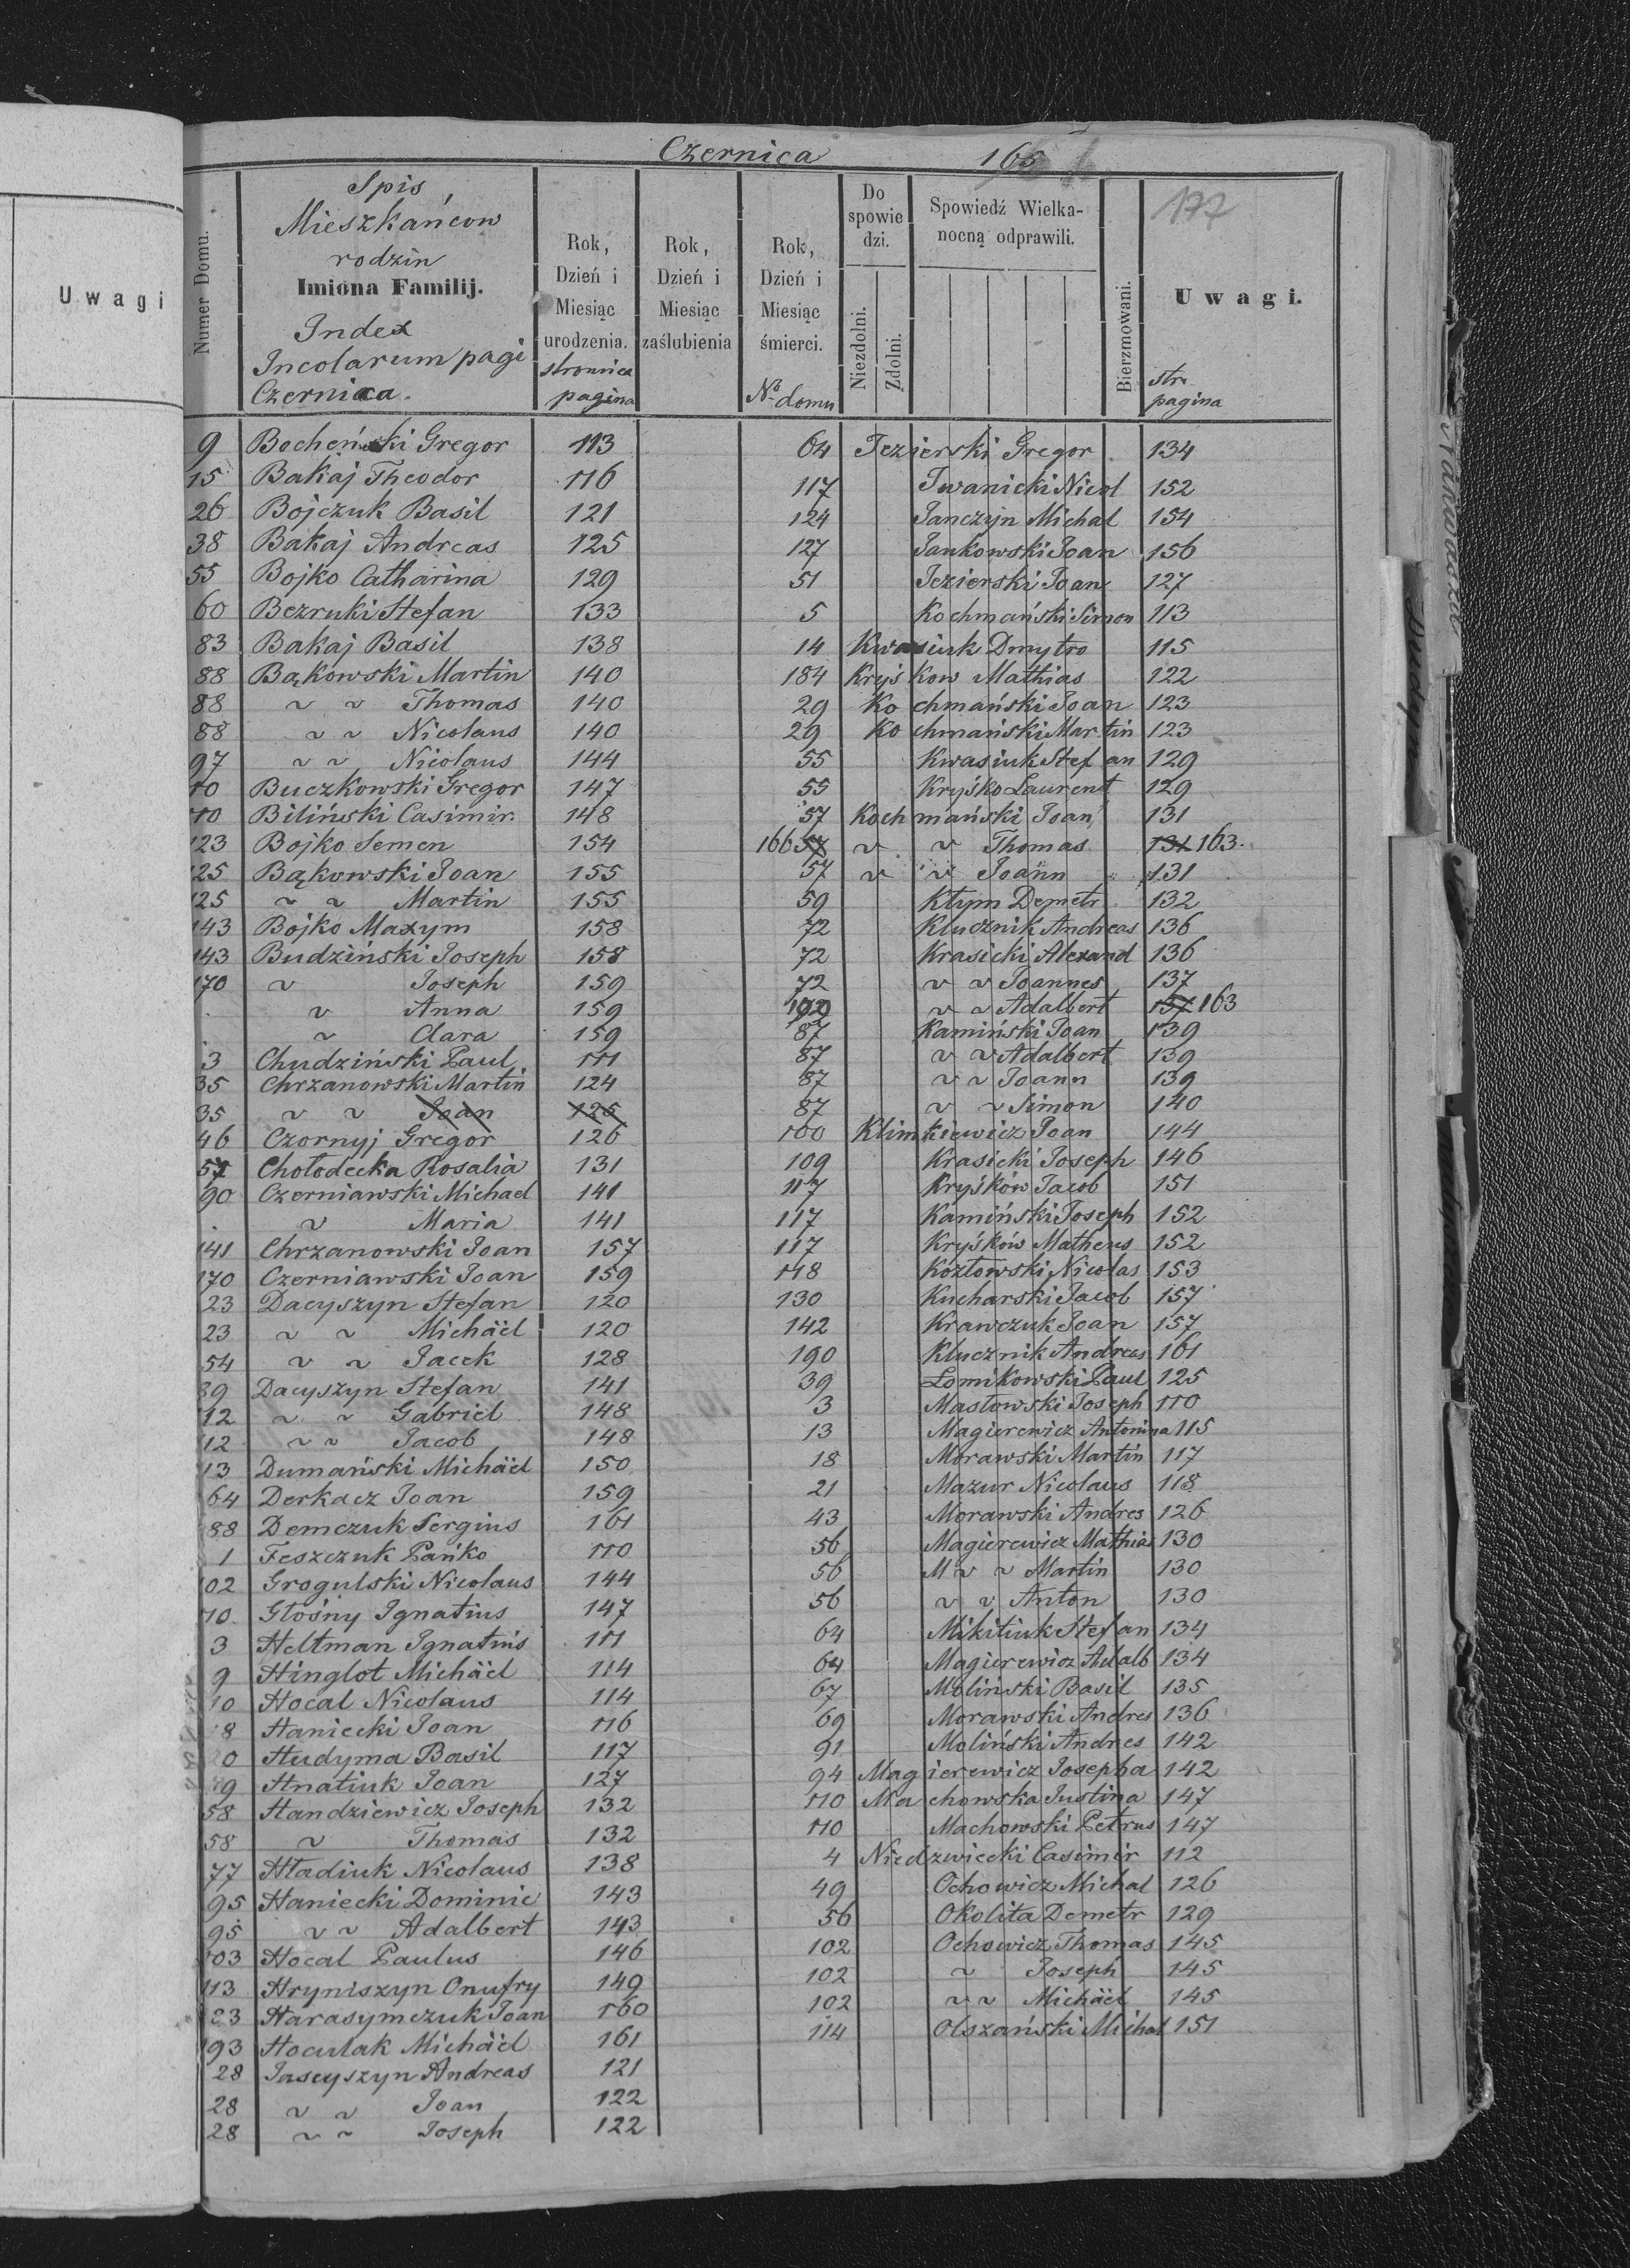 Uwagi
Czernica 165
177
Numer Domu.
Spis
Mieszkańcow
rodzin
Imiona Familij.
Index
Incolarum pagi
Czernica.
Rok,
Dzień i
Miesiąc
urodzenia.
stronnica
pagina
Rok,
Dzień i
Miesiąc
zaślubienia
Rok,
Dzień i
Miesiąc
śmierci.
No domu
Do
spowie
dzi.
Niezdolni.
Zdolni.
Spowiedź Wielka-
nocną odprawili.
Bierzmowani.
Uwagi.
str.
pagina
9 Bocheński Gregor 113
15 Bakaj Theodor 116
26 Bojczuk Basil 121
38 Bakaj Andreas 125
55 Bojko Catharina 129
60 Bezruki Stefan 133
83 Bakaj Basil 138
88 Bąkowski Martin 140
88 ~ ~ Thomas 140
88 ~ ~ Nicolaus 140
97 ~ ~ Nicolaus 144
110 Buczkowski Gregor 147
110 Biliński Casimir. 148
123 Bojko Semen 154
125 Bąkowski Joan 155
125 ~ ~ Martin 155
143 Bojko Maxym 158
143 Budziński Joseph 158
170 ~ Joseph 159
~ Anna 159
~ Clara 159
3 Chudziński Paul 111
35 Chrzanowski Martin 124
35 ~ ~ Joan 125
46 Czornyj Gregor 126
57 Chołodecka Rosalia 131
90 Czerniawski Michael 141
~ Maria 141
141 Chrzanowski Joan 157
170 Czerniawski Joan 159
23 Dacyszyn Stefan 120
23 ~ ~ Michäel 120
54 ~ ~ Jacek 128
89 Dacyszyn Stefan 141
112 ~ ~ Gabriel 148
112 ~ ~ Jacob 148
113 Dumański Michäel 150
164 Derkacz Joan 159
188 Demczuk Sergius 161
1 Feszczuk Pańko 110
102 Grogulski Nicolaus 144
110 Głośny Ignatius 147
3 Heltman Ignatius 111
9 Hinglot Michäel 114
10 Hocal Nicolaus 114
18 Haniecki Joan 116
20 Hudyma Basil 117
49 Hnatiuk Joan 127
58 Handziewicz Joseph 132
58 ~ Thomas 132
77 Hładiuk Nicolaus 138
95 Haniecki Dominic 143
95 ~ ~ Adalbert 143
103 Hocal Paulus 146
113 Hryniszyn Onufry 149
123 Harasymczuk Joan 160
193 Hoculak Michäel 161
28 Jascyszyn Andreas 121
28 ~ ~ Joan 122
28 ~ ~ Joseph 122
64 Jezierski Gregor 134
117 Iwanicki Nicol 152
124 Janczyn Michal 154
127 Jankowski Joan 156
51 Jezierski Joan 127
5 Kochmański Simon 113
14 Kwasiuk Dmytro 115
184 Kryśkow Mathias 122
29 Kochmański Joan 123
29 Kochmański Martin 123
55 Kwasiuk Stefan 129
55 Kryśko Laurent 129
57 Kochmański Joan 131
166 57 ~ ~ Thomas 131 163
57 ~ ~ Joann 131
59 Kłym Demetr 132
72 Klucznik Andreas 136
72 Krasicki Alexand 136
72 ~ ~ Joannes 137
~ ~ Adalbert 137 163
87 Kamiński Joan 139
87 ~ ~ Adalbert 139
87 ~ ~ Joann 139
87 ~ ~ Simon 140
100 Klimkiewicz Joan 144
109 Krasicki Joseph 146
117 Kryśków Jacob 151
117 Kamiński Joseph 152
117 Kryśków Matheus 152
118 Kozłowski Nicolas 153
130 Kucharski Jacob 157
142 Krawczuk Joan 157
190 Klucznik Andreas 161
39 Łomikowski Paul 125
3 Masłowski Joseph 110
13 Magierewicz Antonina 115
18 Morawski Martin 117
21 Mazur Nicolaus 118
43 Morawski Andres 126
56 Magierewicz Mathias 130
56 M ~ ~ Martin 130
56 ~ ~ Anton 130
64 Mikitiuk Stefan 134
64 Magierewicz Adalb 134
67 Moliński Basil 135
69 Morawski Andres 136
91 Moliński Andres 142
94 Magierewicz Josepha 142
110 Machowska Justina 147
110 Machowski Petrus 147
4 Niedzwiecki Casimir 112
49 Ochowicz Michal 126
56 Okolita Demetr 129
102 Ochowicz Thomas 145
102 ~ Joseph 145
102 ~ ~ Michäel 145
114 Olszański Michal 151